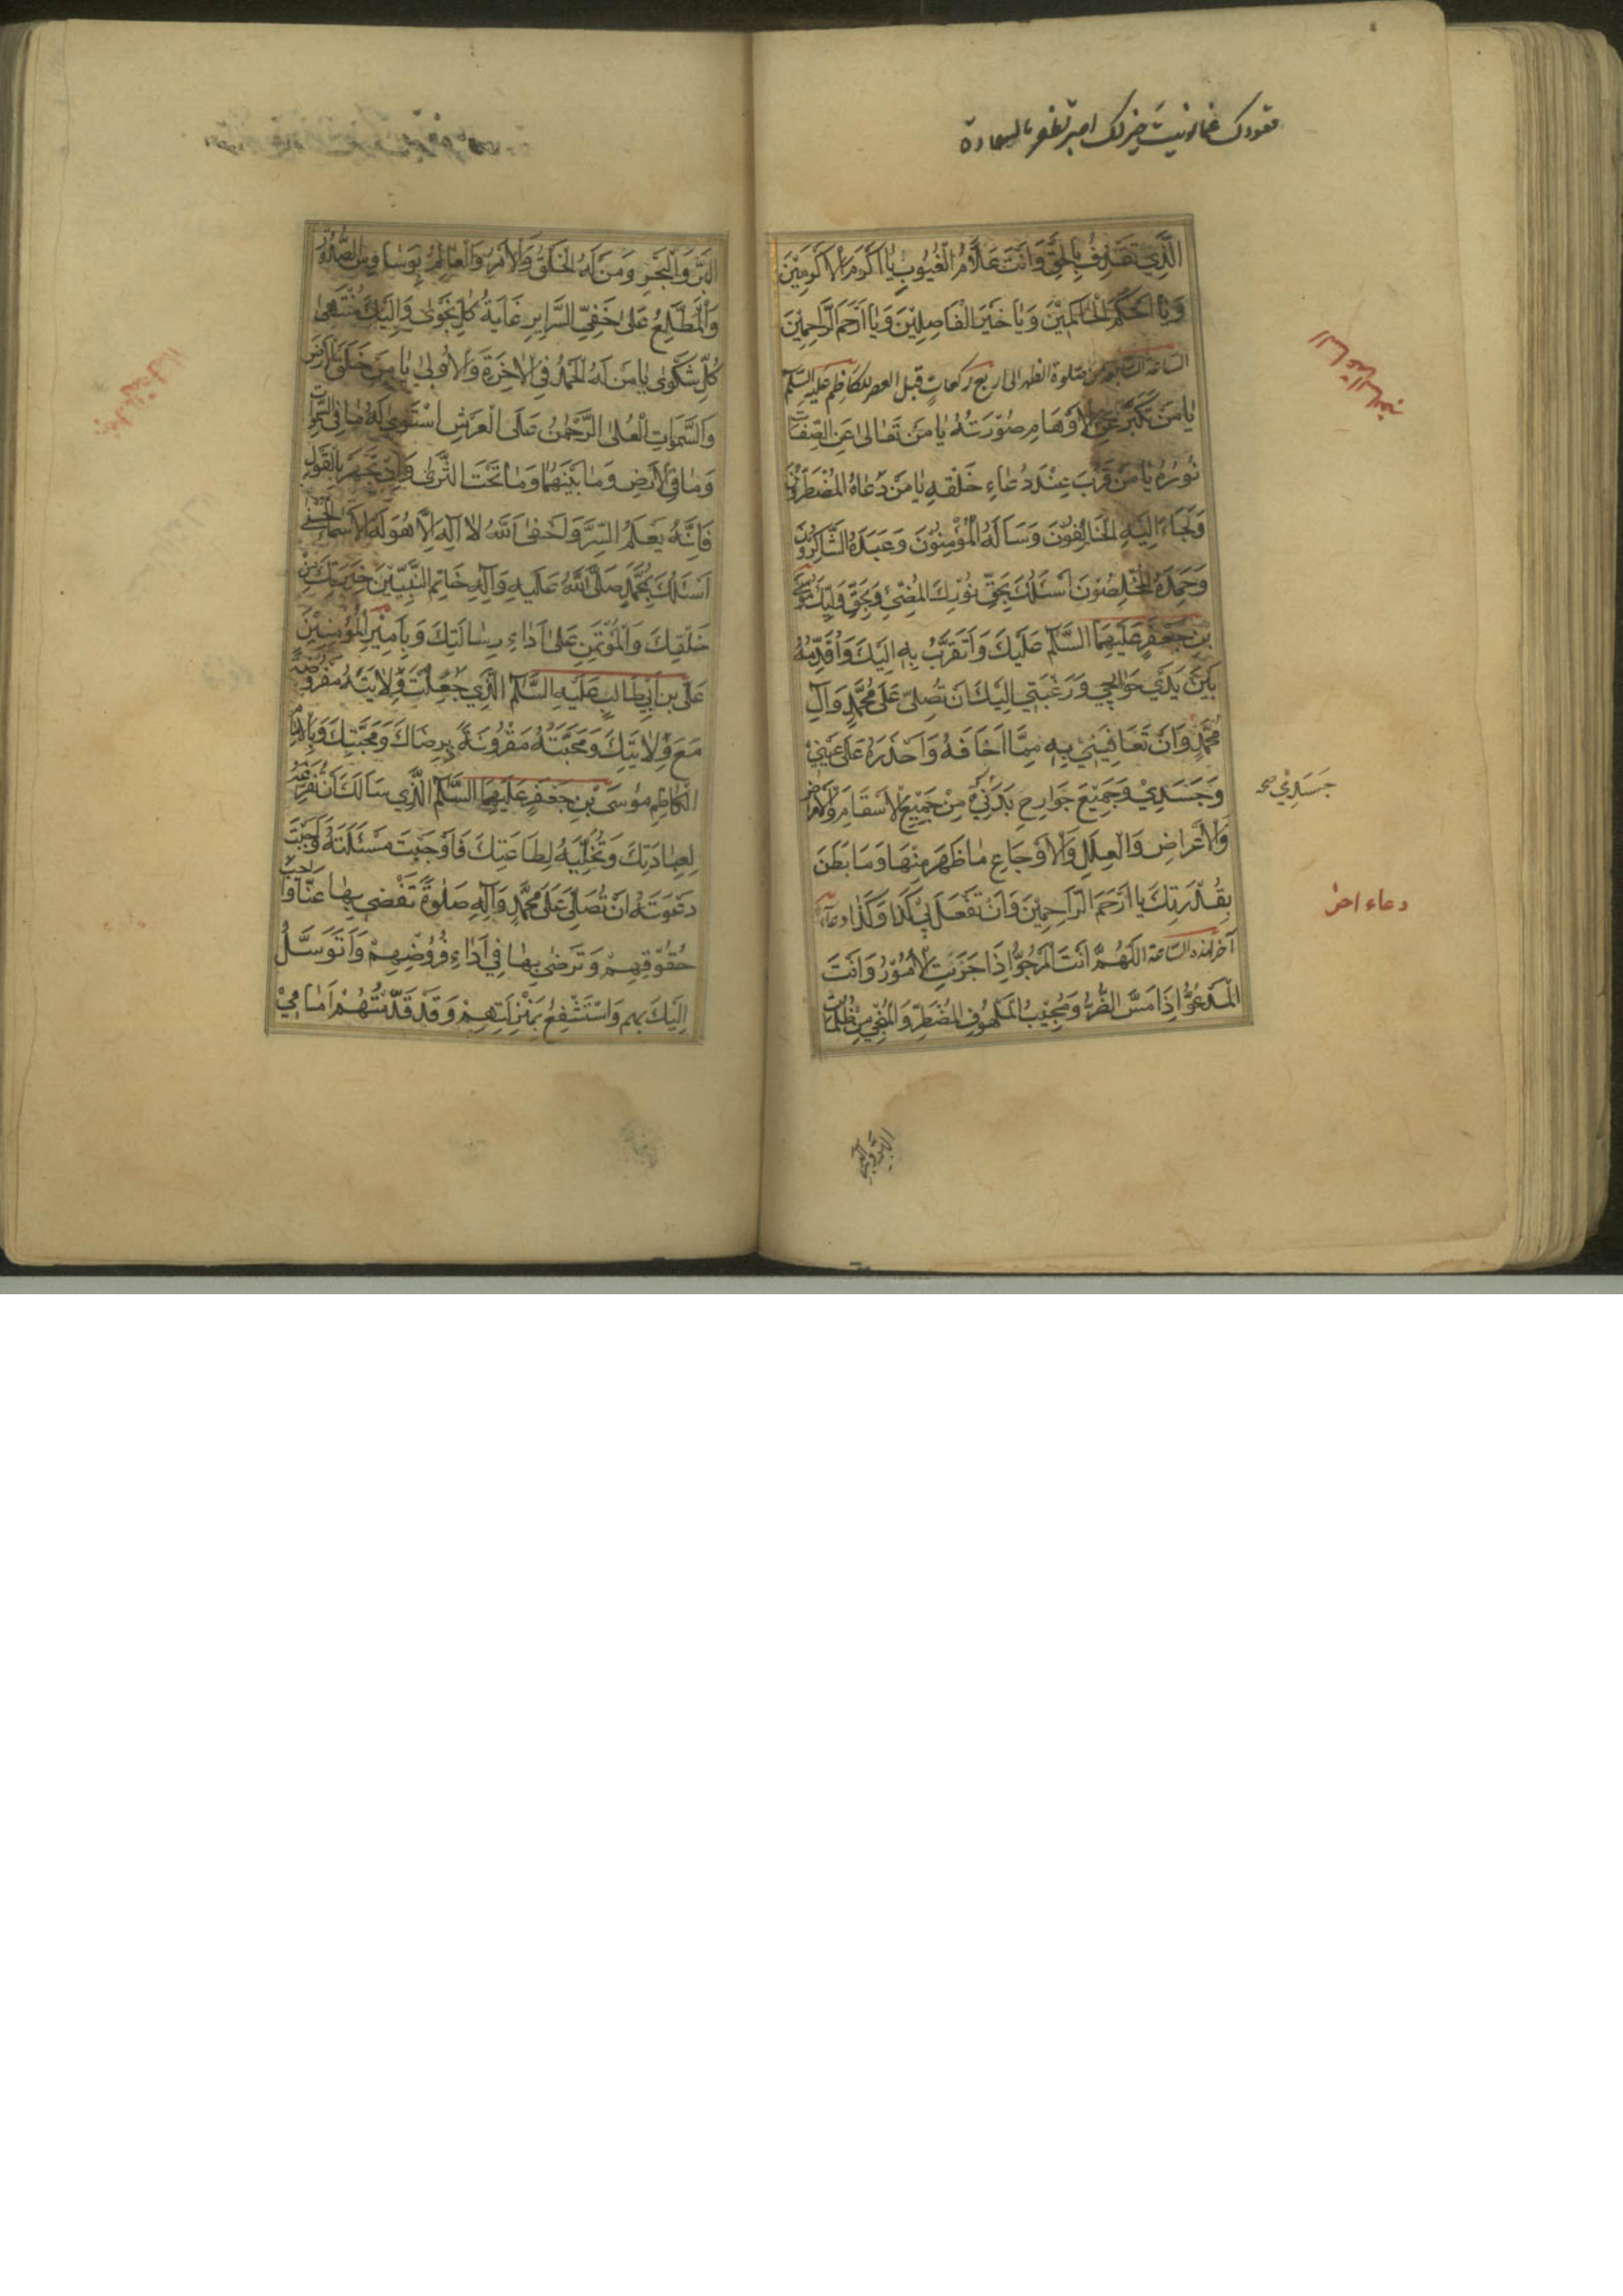 الَّذِي تَقْذِفُ بِالْحَقِّ وَاَنْتَ عَلَّامُ الْغُيُوبِ يَا اَكْرَمَ الْاَكْرَمِينَ
وَيَا اَحْكَمَ الْحَاكِمِينَ وَيَا خَيْرَ الْفَاصِلِينَ وَيَا اَرْحَمَ الرَّاحِمِينَ
الساعة السابعة من صلوة الظهر الى اربع ركعات قبل العصر للكاظم عليه السلام
يَا مَنْ تَكَبَّرَ عَنِ الْاَوْهَامِ صُوْرَتُهُ يَا مَنْ تَعَالىٰ عَنِ الصِّفَاتِ
نُورُهُ يَا مَنْ قَرُبَ عِنْدَ دُعَاءِ خَلْقِهِ يَا مَنْ دَعَاهُ الْمُضْطَرُّونَ
وَلَجَاءَ اِلَيْهِ الْخَائِفُونَ وَسَاَلَهُ الْمُؤْمِنُونَ وَعَبَدَهُ الشَّاكِرُونَ
وَحَمِدَهُ الْمُخْلِصُونَ اَسْئَلُكَ بِحَقِّ نُورِكَ الْمُضِيْءِ وَبِحَقِّ وَلِيِّكَ مُوسَى
بْنِ جَعْفَرٍ عَلَيْهِمَا السَّلَامُ عَلَيْكَ وَاَتَقَرَّبُ بِهِ اِلَيْكَ وَاُقَدِّمُهُ
بَيْنَ يَدَيْ حَوَائِجِي وَرَغْبَتِي اِلَيْكَ اَنْ تُصَلِّيَ عَلَى مُحَمَّدٍ وَآلِ
مُحَمَّدٍ وَاَنْ تُعَافِيَنِي بِهِ مِمَّا اَخَافُهُ وَاَحْذَرُهُ عَلَى عَيْنِي
وَجَسَدِي وَجَمِيعِ جَوَارِحِ بَدَنِي مِنْ جَمِيعِ الْاَسْقَامِ وَالْاَمْرَاضِ
جَسَدِي صح
وَالْاَعْرَاضِ وَالْعِلَلِ وَالْاَوْجَاعِ مَا ظَهَرَ مِنْهَا وَمَا بَطَنَ
بِقُدْرَتِكَ يَا اَرْحَمَ الرَّاحِمِينَ وَاَنْ تَفْعَلَ بِي كَذَا وَكَذَا دعاء
دعاء اخر
آخر لهذه الساعة اَللّٰهُمَّ اَنْتَ الْمَرْجُوُّ اِذَا حَزَنَتِ الْاُمُورُ وَاَنْتَ
الْمَدْعُوُّ اِذَا مَسَّ الضُّرُّ وَمُجِيْبُ الْمَلْهُوفِ الْمُضْطَرِّ وَالْمُنْجِي مِنْ ظُلُمَاتِ
الْبَرِّ وَالْبَحْرِ
الْبَرِّ وَالْبَحْرِ وَمَنْ لَهُ الْخَلْقُ وَالْاَمْرُ وَالْعَالِمُ بِوَسَاوِسِ الصُّدُورِ
وَالْمُطَّلِعُ عَلىٰ خَفِيِّ السَّرَايِرِ غَايَةُ كُلِّ نَجْوىٰ وَاِلَيْكَ مُنْتَهىٰ
كُلِّ شَكْوىٰ يَا مَنْ لَهُ الْحَمْدُ فِي الْاٰخِرَةِ وَالْاُوْلىٰ يَا مَنْ خَلَقَ الْاَرْضَ
وَالسَّمٰوَاتِ الْعُلىٰ الرَّحْمٰنُ عَلَى الْعَرْشِ اسْتَوىٰ لَهُ مَا فِي السَّمٰوَاتِ
وَمَا فِي الْاَرْضِ وَمَا بَيْنَهُمَا وَمَا تَحْتَ الثَّرىٰ وَاِنْ تَجْهَرْ بِالْقَوْلِ
فَاِنَّهُ يَعْلَمُ السِّرَّ وَاَخْفىٰ اَللّٰهُ لَا اِلٰهَ اِلَّا هُوَ لَهُ الْاَسْمَاءُ الْحُسْنىٰ
اَسْئَلُكَ بِمُحَمَّدٍ صَلَّى اللّٰهُ عَلَيْهِ وَآلِهِ خَاتِمِ النَّبِيِّينَ خِيَرَتِكَ مِنْ
خَلْقِكَ وَالْمُؤْتَمَنِ عَلىٰ اَدَاءِ رِسَالَتِكَ وَبِاَمِيْرِ الْمُؤْمِنِيْنَ
عَلِيِّ بْنِ اَبِي طَالِبٍ عَلَيْهِ السَّلَامُ الَّذِي جَعَلْتَ وِلَايَتَهُ مَفْرُوضَةً
مَعَ وِلَايَتِكَ وَمَحَبَّتَهُ مَقْرُونَةً بِرِضَاكَ وَمَحَبَّتِكَ وَبِالْاِمَامِ
الْكَاظِمِ مُوسَى بْنِ جَعْفَرٍ عَلَيْهِمَا السَّلَامُ الَّذِي سَاَلَكَ اَنْ تُفَرِّغَهُ
لِعِبَادَتِكَ وَتُخَلِّيَهُ لِطَاعَتِكَ فَاَوْجَبْتَ مَسْئَلَتَهُ وَاَجَبْتَ
دَعْوَتَهُ اَنْ تُصَلِّيَ عَلَى مُحَمَّدٍ وَآلِهِ صَلوٰةً تَقْضِي بِهَا عَنَّا وَاجِبَ
حُقُوقِهِمْ وَتَرْضىٰ بِهَا فِي اَدَاءِ فُرُوضِهِمْ وَاَتَوَسَّلُ
اِلَيْكَ بِهِمْ وَاَسْتَشْفِعُ بِمَنْزِلَتِهِمْ وَقَدْ قَدَّمْتُهُمْ اَمَامِي